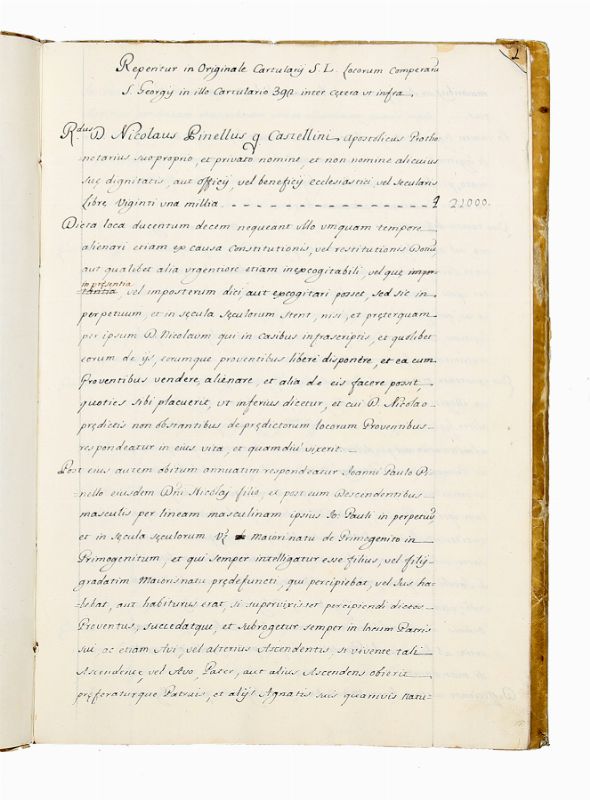 2
Reperitur in Originale Cartularij S. L. Locorum Comperarũ
S. Georgij in illo Cartulario 392 inter cętera ut infra.
R.dus D. Nicolaus Pinellus q Castellini Apostolicus Protho-
notarius suo proprio, et privato nomine, et non nomine alicuius
suę dignitatis, aut officij, vel beneficij ecclesiastici, vel secularis
Librę Viginti una millia 21000.
Dicta loca ducentum decem nequeant ullo umquam tempore
alienari etiam ex causa Constitutionis, vel restitutionis Dotiũ
aut qualibet alia urgentiore etiam inexcogitabili, vel quę
in pręsentia
vel imposterum dici, aut excogitari posset, sed sic in
perpetuum, et in sęcula sęculorum stent, nisi, et pręterquam
per ipsum D. Nicolaum qui in casibus infrascriptis, et quolibet
eorum de ijs, eorumque proventibus libere disponere, et ea cum
Proventibus vendere, alienare, et alia de eis facere possit
quoties sibi placuerit, ut inferius dicetur, et cui D. Nicolao
prędictis non obstantibus de prędictorum locorum Proventibus
respondeatur in eius vita, et quamdiu vixerit.
Post eius autem obitum annuatim respondeatur Joanni Paulo Pi-
nello eiusdem Dñi Nicolaj filio, et post eum Descendentibus
masculis per lineam masculinam ipsius Jo: Pauli in perpetuũ
et in sęcula sęculorum Vz Maiori natu de Primogenito in
Primogenitum, et qui semper intelligatur esse filius, vel filij
gradatim Maioris natu prędefuncti, qui percipiebat, vel Jus ha-
bebat, aut habiturus erat, si supervixisset percipiendi dictos
Proventus, succedatque, et subrogetur semper in locum Patris
sui, ac etiam Avi, vel alterius Ascendentis, si vivente tali
Ascendente, vel Avo, Pater, aut alius Ascendens obierit
pręferaturque Patruis, et alijs Agnatis suis quamvis natu-